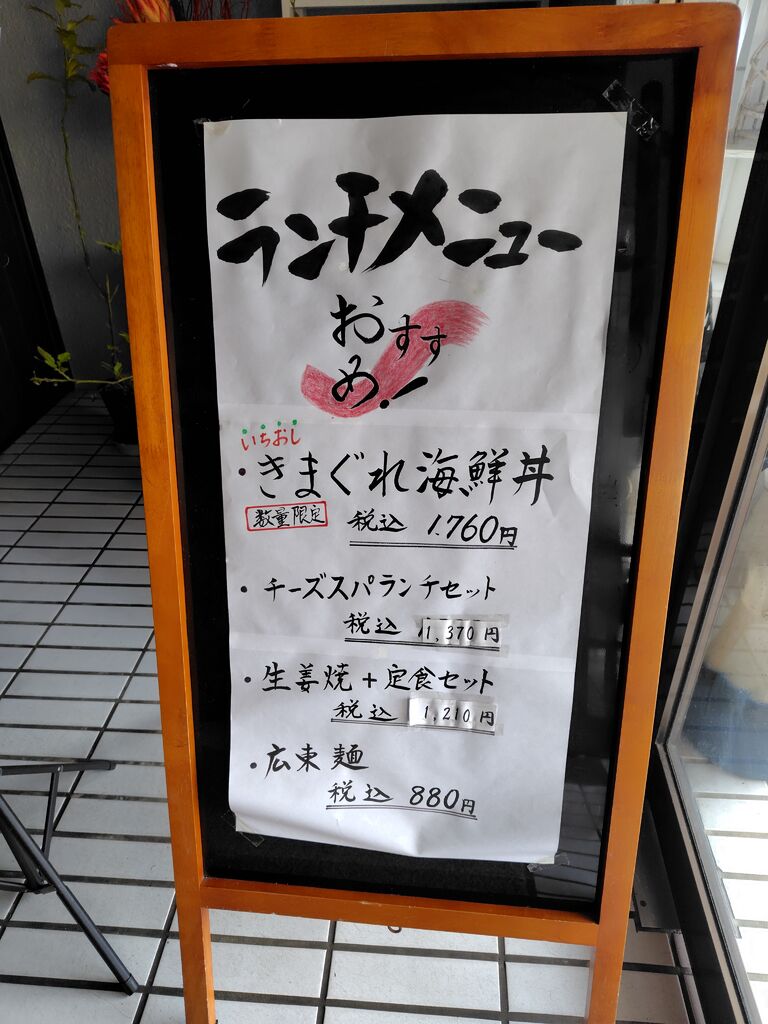 ランチメニュー
おすす
め!
いちおし
・きまぐれ海鮮丼
数量限定 税込 1.760円
・チーズスパランチセット
税込 1,370円
・生姜焼+定食セット
税込 1,210円
・広東麺
税込 880円